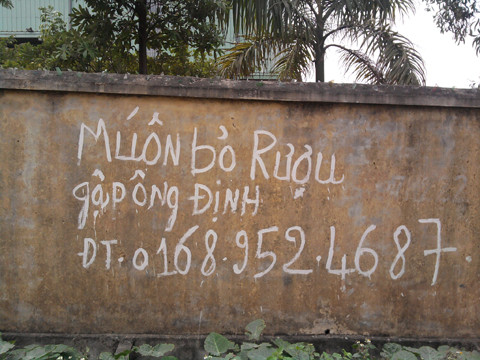 MUÔN bỏ Rượu
gặp ông ĐỊNH
ĐT. 0168.952.4687.